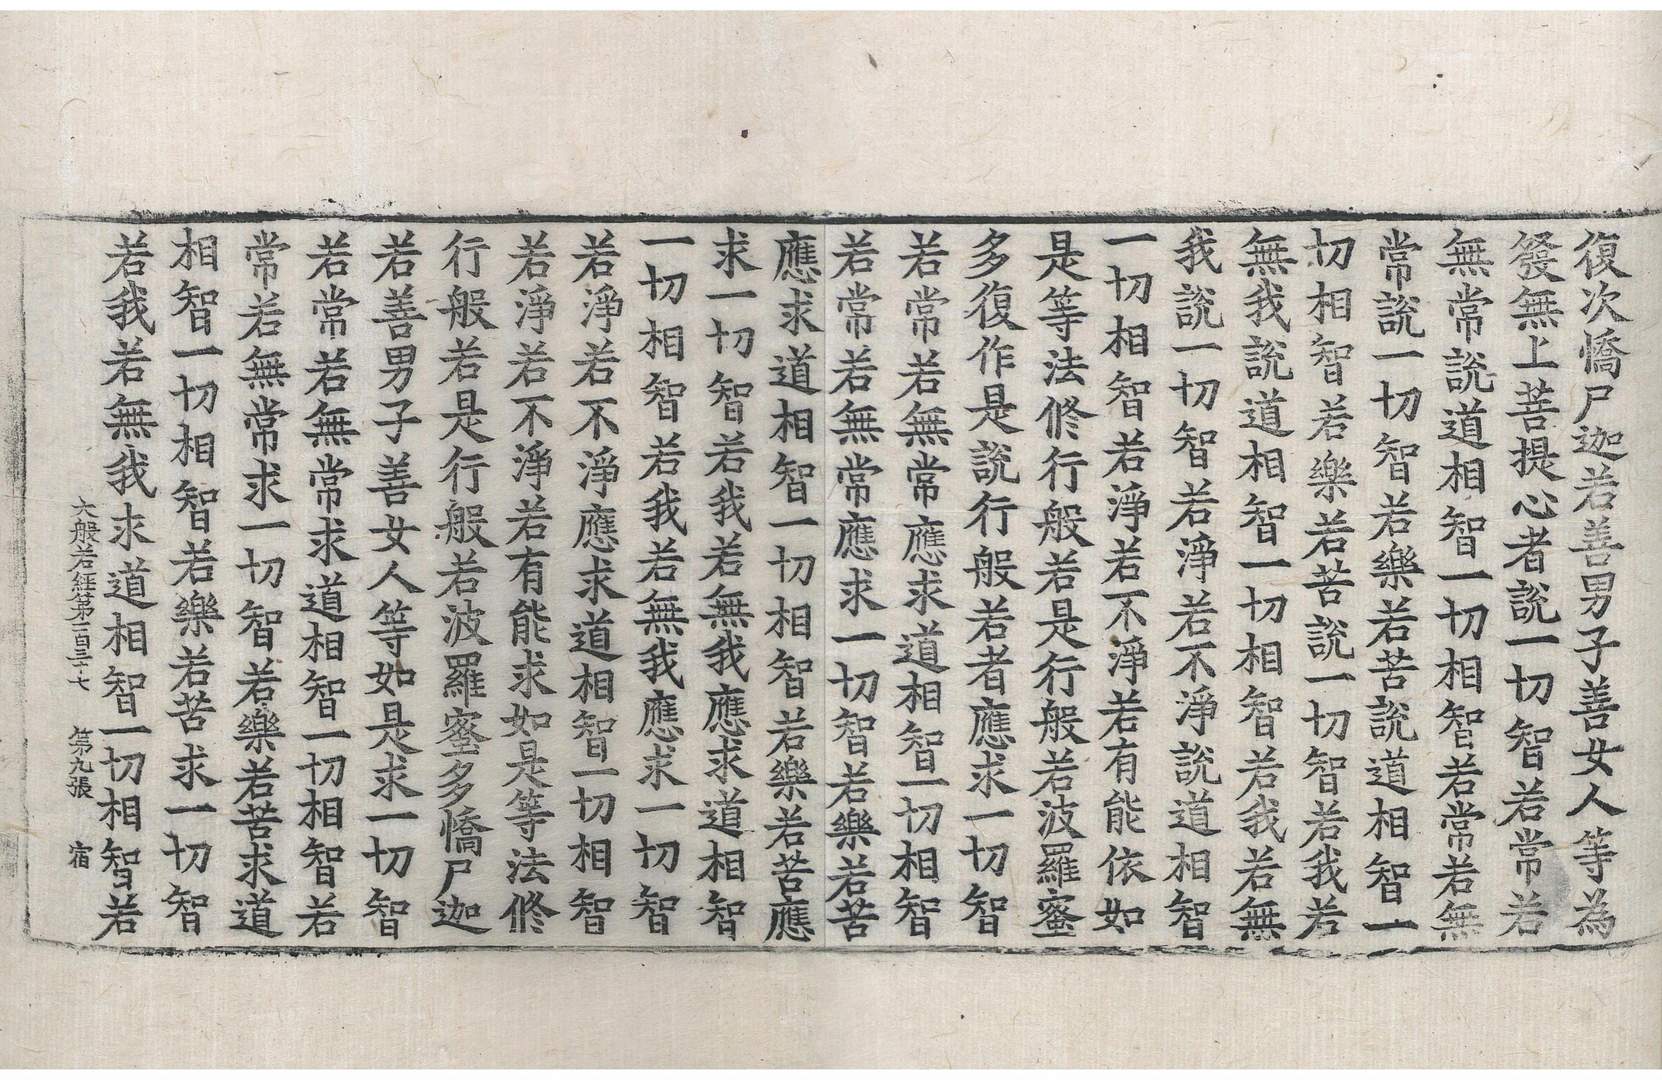 復次憍尸迦若善男子善女人等為
發無上菩提心者說一切智若常若
無常說道相智一切相智若常若無
常說一切智若樂若苦說道相智一
切相智若樂若苦說一切智若我若
無我說道相智一切相智若我若無
我說一切智若淨若不淨說道相智
一切相智若淨若不淨若有能依如
是等法修行般若是行般若波羅蜜
多復作是說行般若者應求一切智
若常若無常應求道相智一切相智
若常若無常應求一切智若樂若苦
應求道相智一切相智若樂若苦應
求一切智若我若無我應求道相智
一切相智若我若無我應求一切智
若淨若不淨應求道相智一切相智
若淨若不淨若有能求如是等法修
行般若是行般若波羅蜜多憍尸迦
若善男子善女人等如是求一切智
若常若無常求道相智一切相智若
常若無常求一切智若樂若苦求道
相智一切相智若樂若苦求一切智
若我若無我求道相智一切相智若
大般若經第一百三十七 第九張 宿